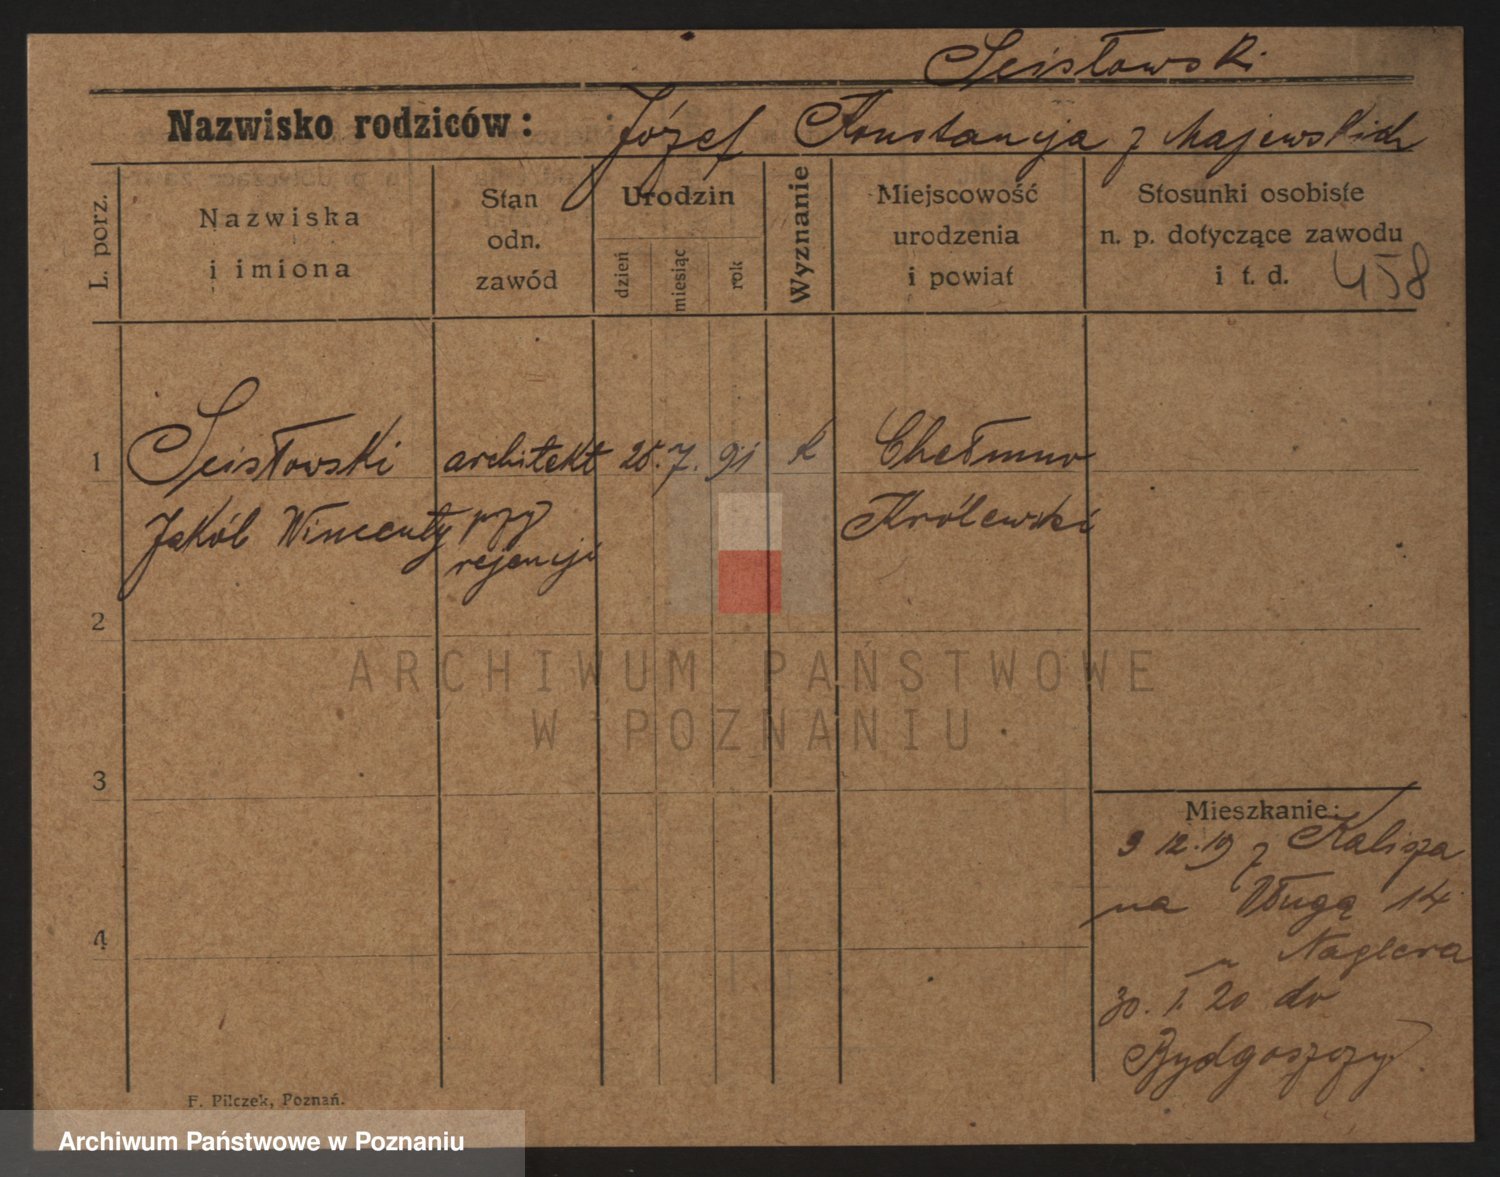 Scisłowski
Nazwisko rodziców: Józef Konstancja z Majewskich
L. porz.
Nazwiska
i imiona
Stan
odn.
zawód
Urodzin
dzień
miesiąc
rok
Wyznanie
Miejscowość
urodzenia
i powiat
Stosunki osobiste
n. p. dotyczące zawodu
i t. d.
458
1 Scisłowski architekt 25. 7. 91 k Chełmno
Jakób Wincenty przy Królewski
rejencji
2
3
4
Mieszkanie:
9 12. 19 z Kalisza
na Długą 14
u Naglera
30. I. 20 do
Bydgoszczy
F. Pilczek, Poznań.
ARCHIWUM PAŃSTWOWE
W POZNANIU
Archiwum Państwowe w Poznaniu